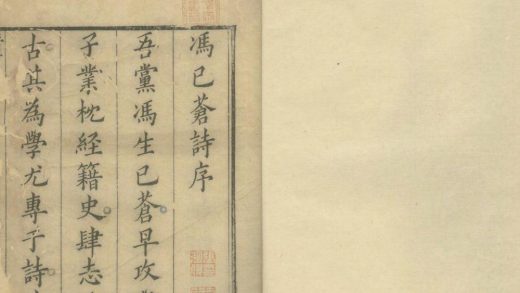 馮已蒼詩序
吾黨馮生已蒼早攻
子業枕経籍史肆志
古其為學尤專于詩